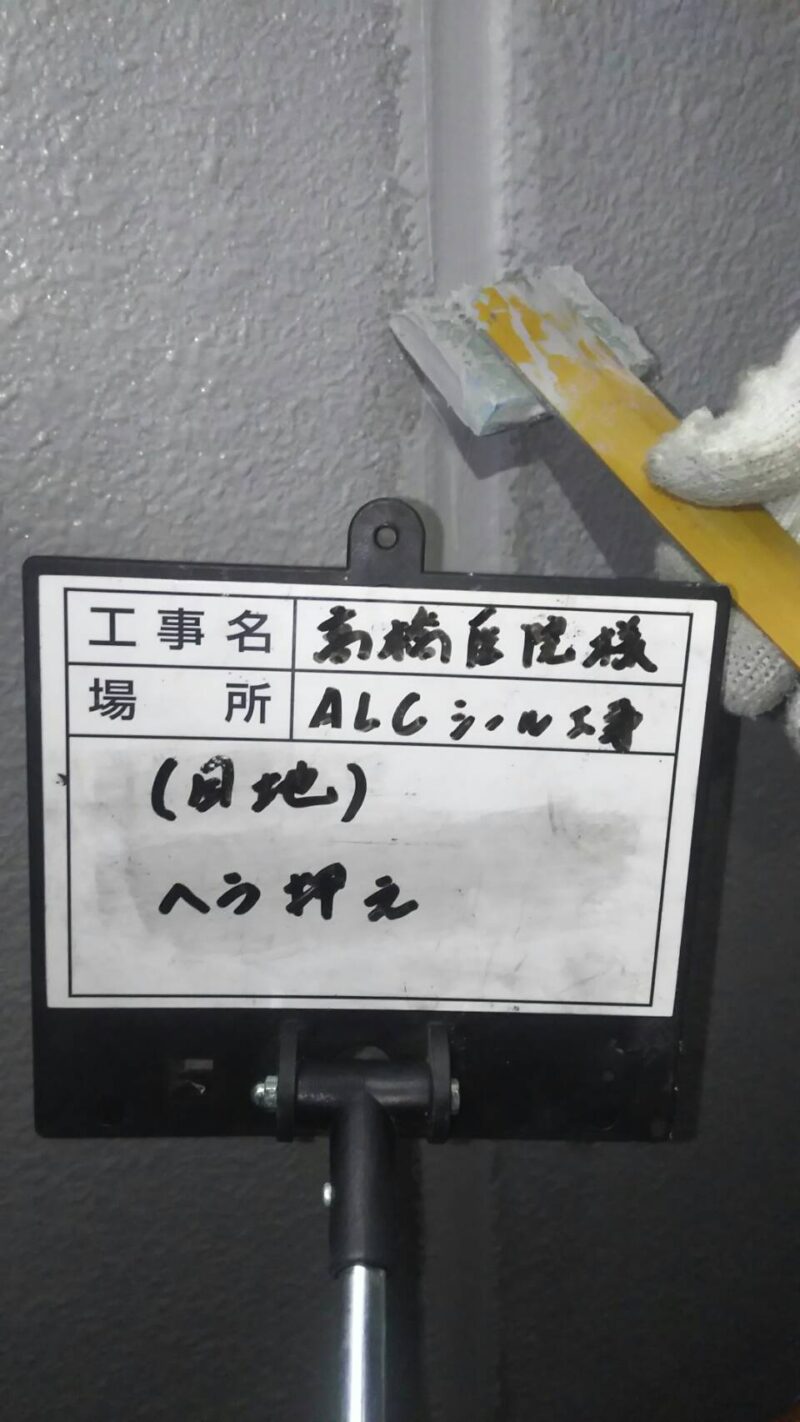 工事名 高橋医院様
場所 ALCシール工事
(目地)
ヘラ押え